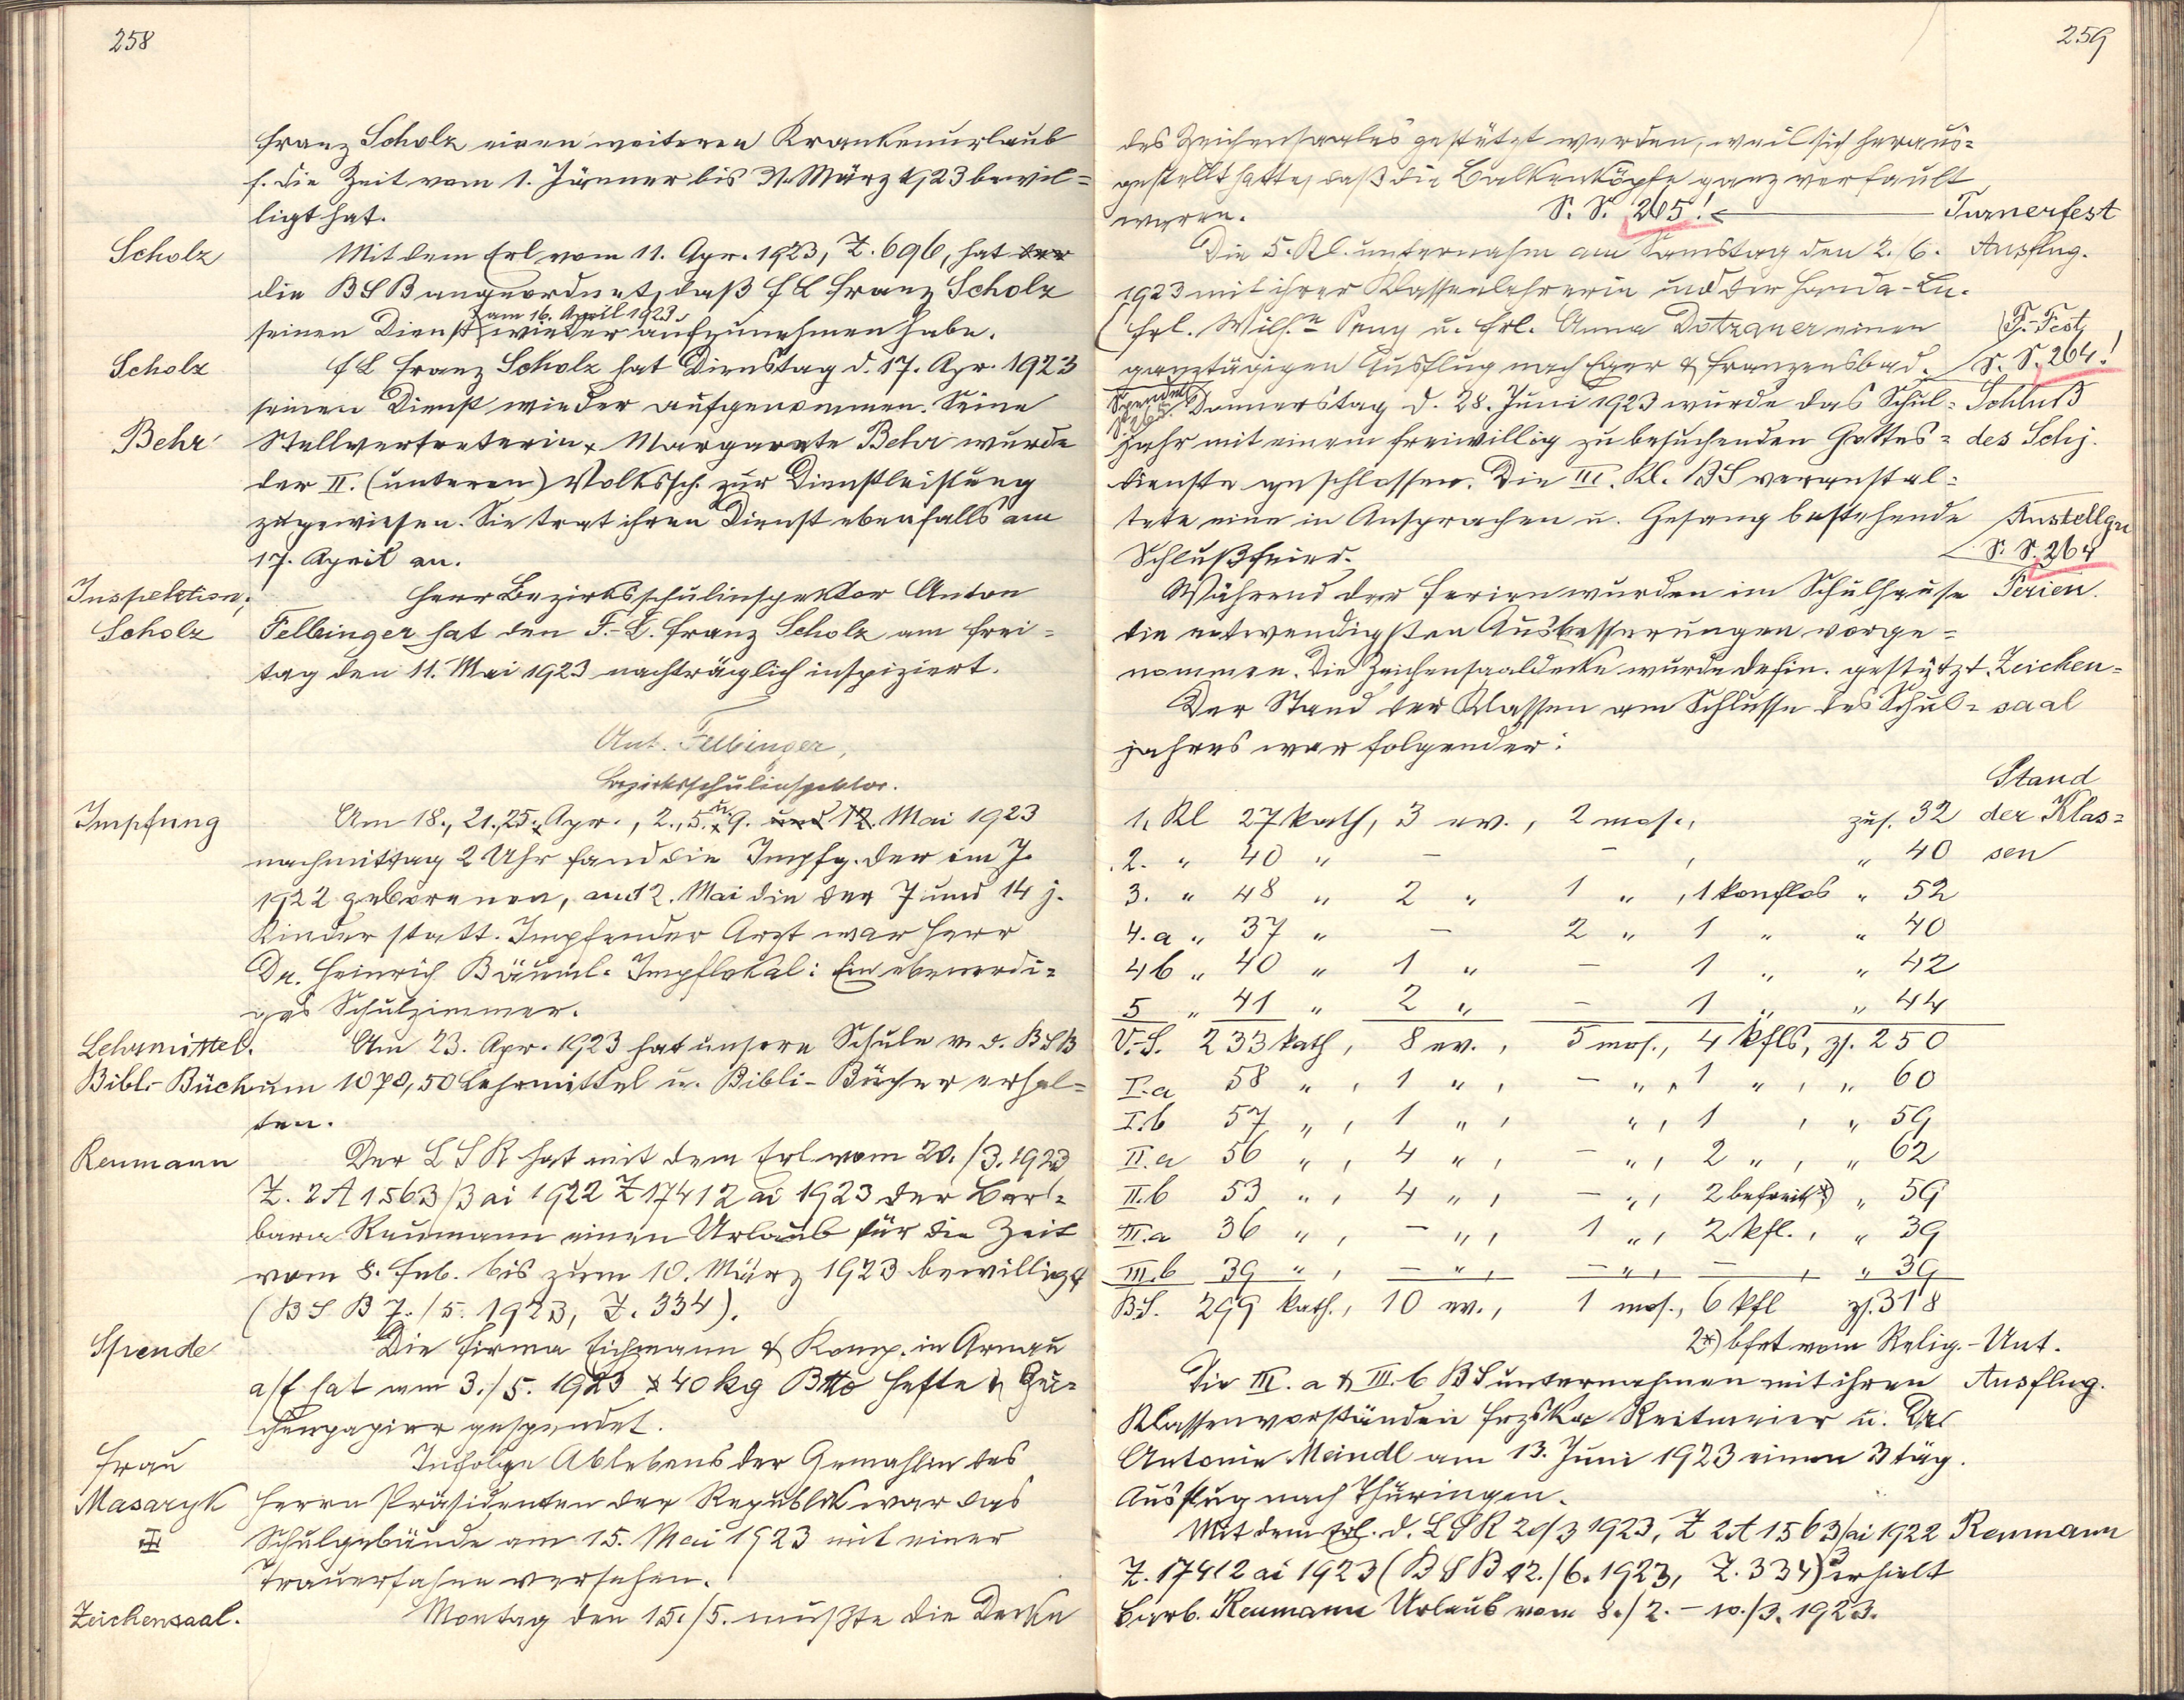 258
Franz Scholz einen weiteren Krankenurlaub
f. die Zeit vom 1. Jänner bis 31. März 1923 bewil=
ligt hat.
Scholz Mit dem Erl vom 11. Apr. 1923, Z. 696, hat der
die BSB angeordnet, daß f L Franz Scholz
am 16. April 1923
seinen Dienst wieder aufzunehmen habe.
Scholz f L Franz Scholz hat Dienstag d. 17. Apr. 1923
seinen Dienst wieder aufgenommen. Seine
Behr Stellvertreterin Margarete Behr wurde
der II. (unteren) Volkssch. zur Dienstleistung
zugewiesen. Sie trat ihren Dienst ebenfalls am
17. April an.
Inspektion, Herr Bezirksschulinspektor Anton
Scholz Felbinger hat den F.-L. Franz Scholz am Frei=
tag den 11. Mai 1923 nachträglich inspiziert.
Ant. Felbinger,
Bezirksschulinspektor.
Impfung Am 18., 21., 25. Apr., 2., 5. u. 9. und 12. Mai 1923
nachmittag 2 Uhr fand die Impfg. der im J.
1922 geborenen, am 12. Mai die der 7 und 14 j.
Kinder statt. Impfender Arzt war Herr
Dr. Heinrich Bäuml. Impflokal: Ein ebenerdi=
ges Schulzimmer.
Lehrmittel. Am 23. Apr. 1923 hat unsere Schule v. d. BSB
Bibl.-Büch um 1070,50 Lehrmittel u. Bibli-Bücher erhal=
ten.
Reumann Der LSR hat mit dem Erl vom 20./3. 1923
Z. 2A 1563/3 ai 1922 Z 17412 ai 1923 der Bar=
bara Reumann einen Urlaub für die Zeit
vom 8. Feb. bis zum 10. März 1923 bewilligt
(BSB 7./5. 1923, Z. 334).
Spende Die Firma Eichmann & Komp. in Arnau
a/E hat am 3./5. 1923 40 kg Btto Hefte & Zei=
chenpapier gespendet.
Frau Infolge Ablebens der Gemahlin des
Masaryk Herrn Präsidenten der Republik war das
Schulgebäude am 15. Mai 1923 mit einer
Trauerfahne versehen.
Zeichensaal. Montag den 15./5. mußte die Decke
259
des Zeichensaales gestützt werden, weil sich heraus=
gestellt hatte, daß die Balkenköpfe ganz verfault
waren. S. S. 265! Turnerfest
Die 5. Kl. unternahm am Samstag den 2. 6. Ausflug.
1923 mit ihrer Klassenlehrerin und der Handa-Ln.
Frl. Wilh.ne Peny u. Frl. Anna Dotzauer einen T.-Fest
ganztägigen Ausflug nach Eger & Franzensbad. S. S. 264!
Spenden S. 265
Donnerstag d. 28. Juni 1923 wurde das Schul= Schluß
jahr mit einem freiwillig zu besuchenden Gottes= des Schj.
dienste geschlossen. Die III. Kl. BS veranstal=
tete eine in Ansprachen u. Gesang bestehende Austellgn
Schlußfeier. S. S. 264
Während der Ferien wurden im Schulhause Ferien.
die notwendigsten Ausbesserungen vorge=
nommen. Die Zeichensaaldecke wurde defin. gestützt. Zeichen=
Der Stand der Klassen am Schlusse des Schul= saal
jahres war folgender:
Stand
1. Kl 27 kath, 3 ev., 2 mos., zus. 32 der Klas=
2. " 40 " – – , " 40 sen
3. " 48 " 2 " 1 " , 1 konflos " 52
4. a " 37 " – 2 " 1 " " 40
4 b " 40 " 1 " – 1 " " 42
5 " 41 " 2 " – 1 " " 44
V.-S. 233 kath, 8 ev., 5 mos., 4 kfls, zs. 250
I. a 58 " , 1 " , – " , 1 " , " 60
I. b 57 " , 1 " , " , 1 , " 59
II. a 56 " , 4 " , – " , 2 " , " 62
II. b 53 " , 4 " , – " , 2 befreit*) " 59
III. a 36 " , – " , 1 " , 2 kfl. , " 39
III. b 39 " , – " , – " , – , " 39
B.S. 299 kath., 10 ev., 1 mos., 6 kfl zs. 318
2*) bfrt vom Relig.-Unt.
Die III. a & III. b BS unternahmen mit ihren Ausflug.
Klassenvorständen Frzska Reitmeier u.
Antonie Meindl am 13. Juni 1923 einen 3 täg.
Ausflug nach Thüringen.
Mit dem Erl. d. LSR 20/3 1923, Z 2A 1563/ai 1922 Reumann
Z. 17412 ai 1923 (BSB 12./6. 1923, Z. 334) erhielt
Barb. Reumann Urlaub vom 8./2. – 10./3. 1923.